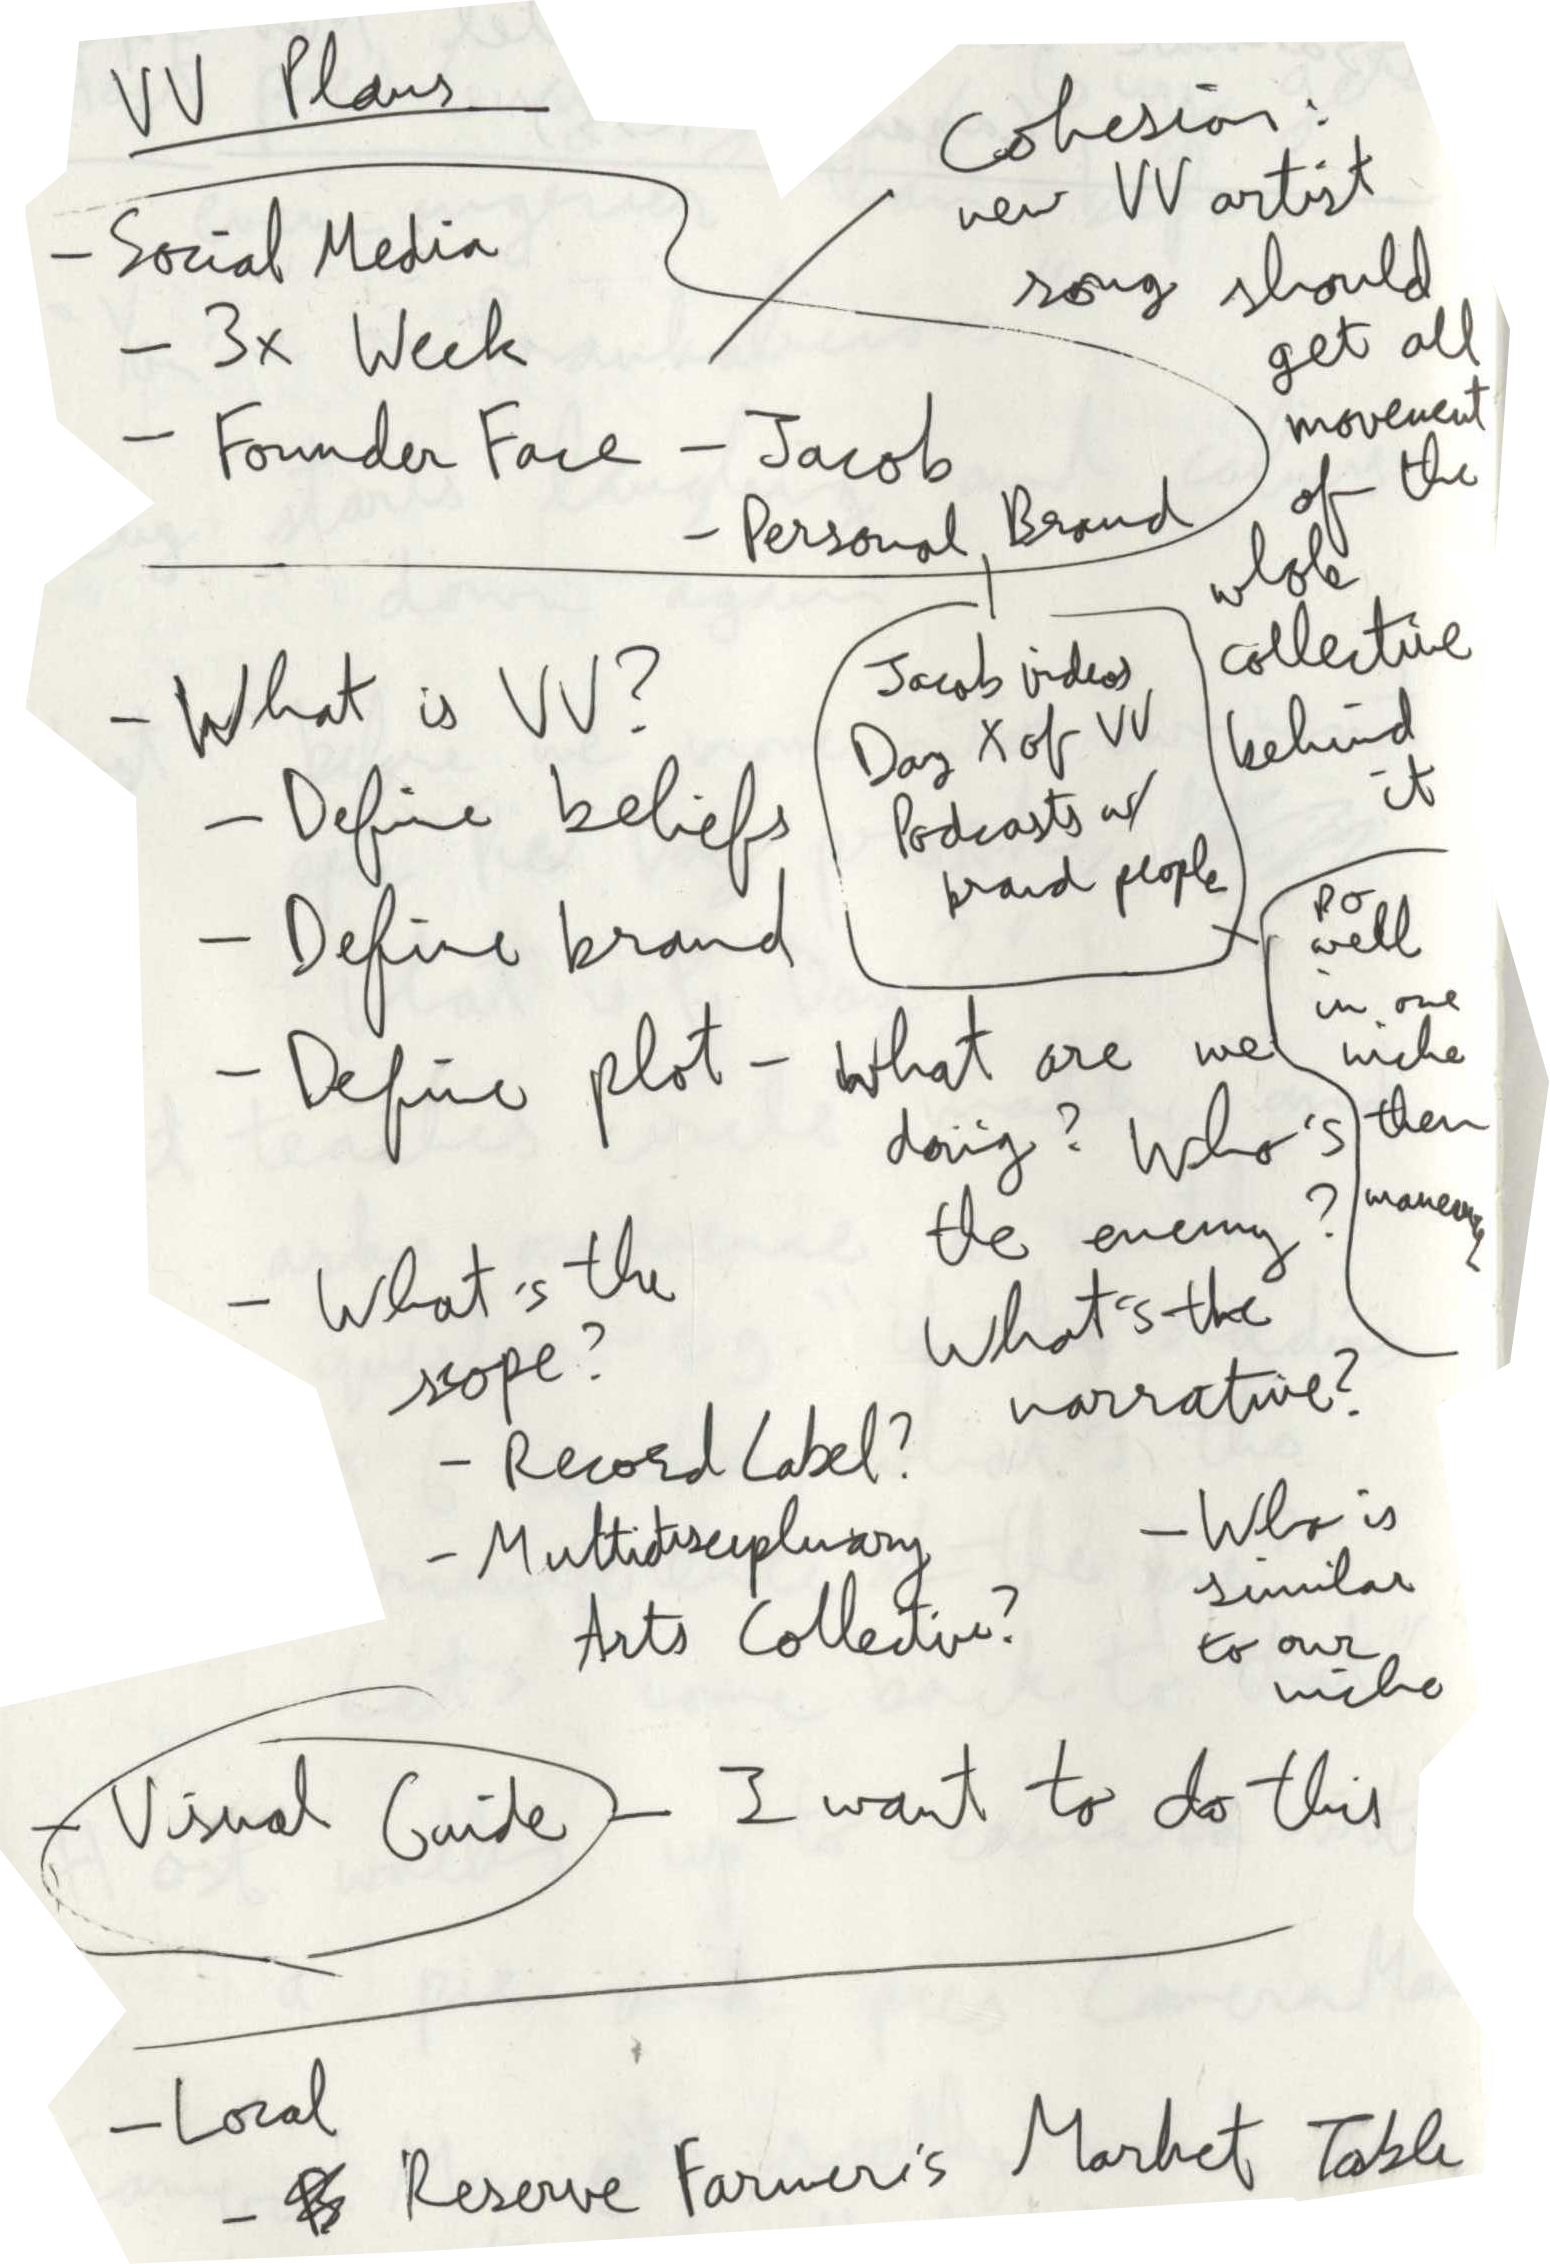 VV Plans
- Social Media
- 3x Week
- Founder Face - Jacob
- Personal Brand
Cohesion:
new VV artist
song should
get all
movement
of the
whole
collective
behind
it
Jacob videos
Day X of VV
Podcasts w/
brand people
Do
well
in one
niche
then
- What is VV?
- Define beliefs
- Define brand
- Define plot - What are we
doing? Who's
the enemy?
What's the
narrative?
- What's the
scope?
- Record Label?
- Multidisciplinary
Arts Collective?
- Who is
similar
to our
niche
- Visual Guide - I want to do this
- Local
- Reserve Farmer's Market Table